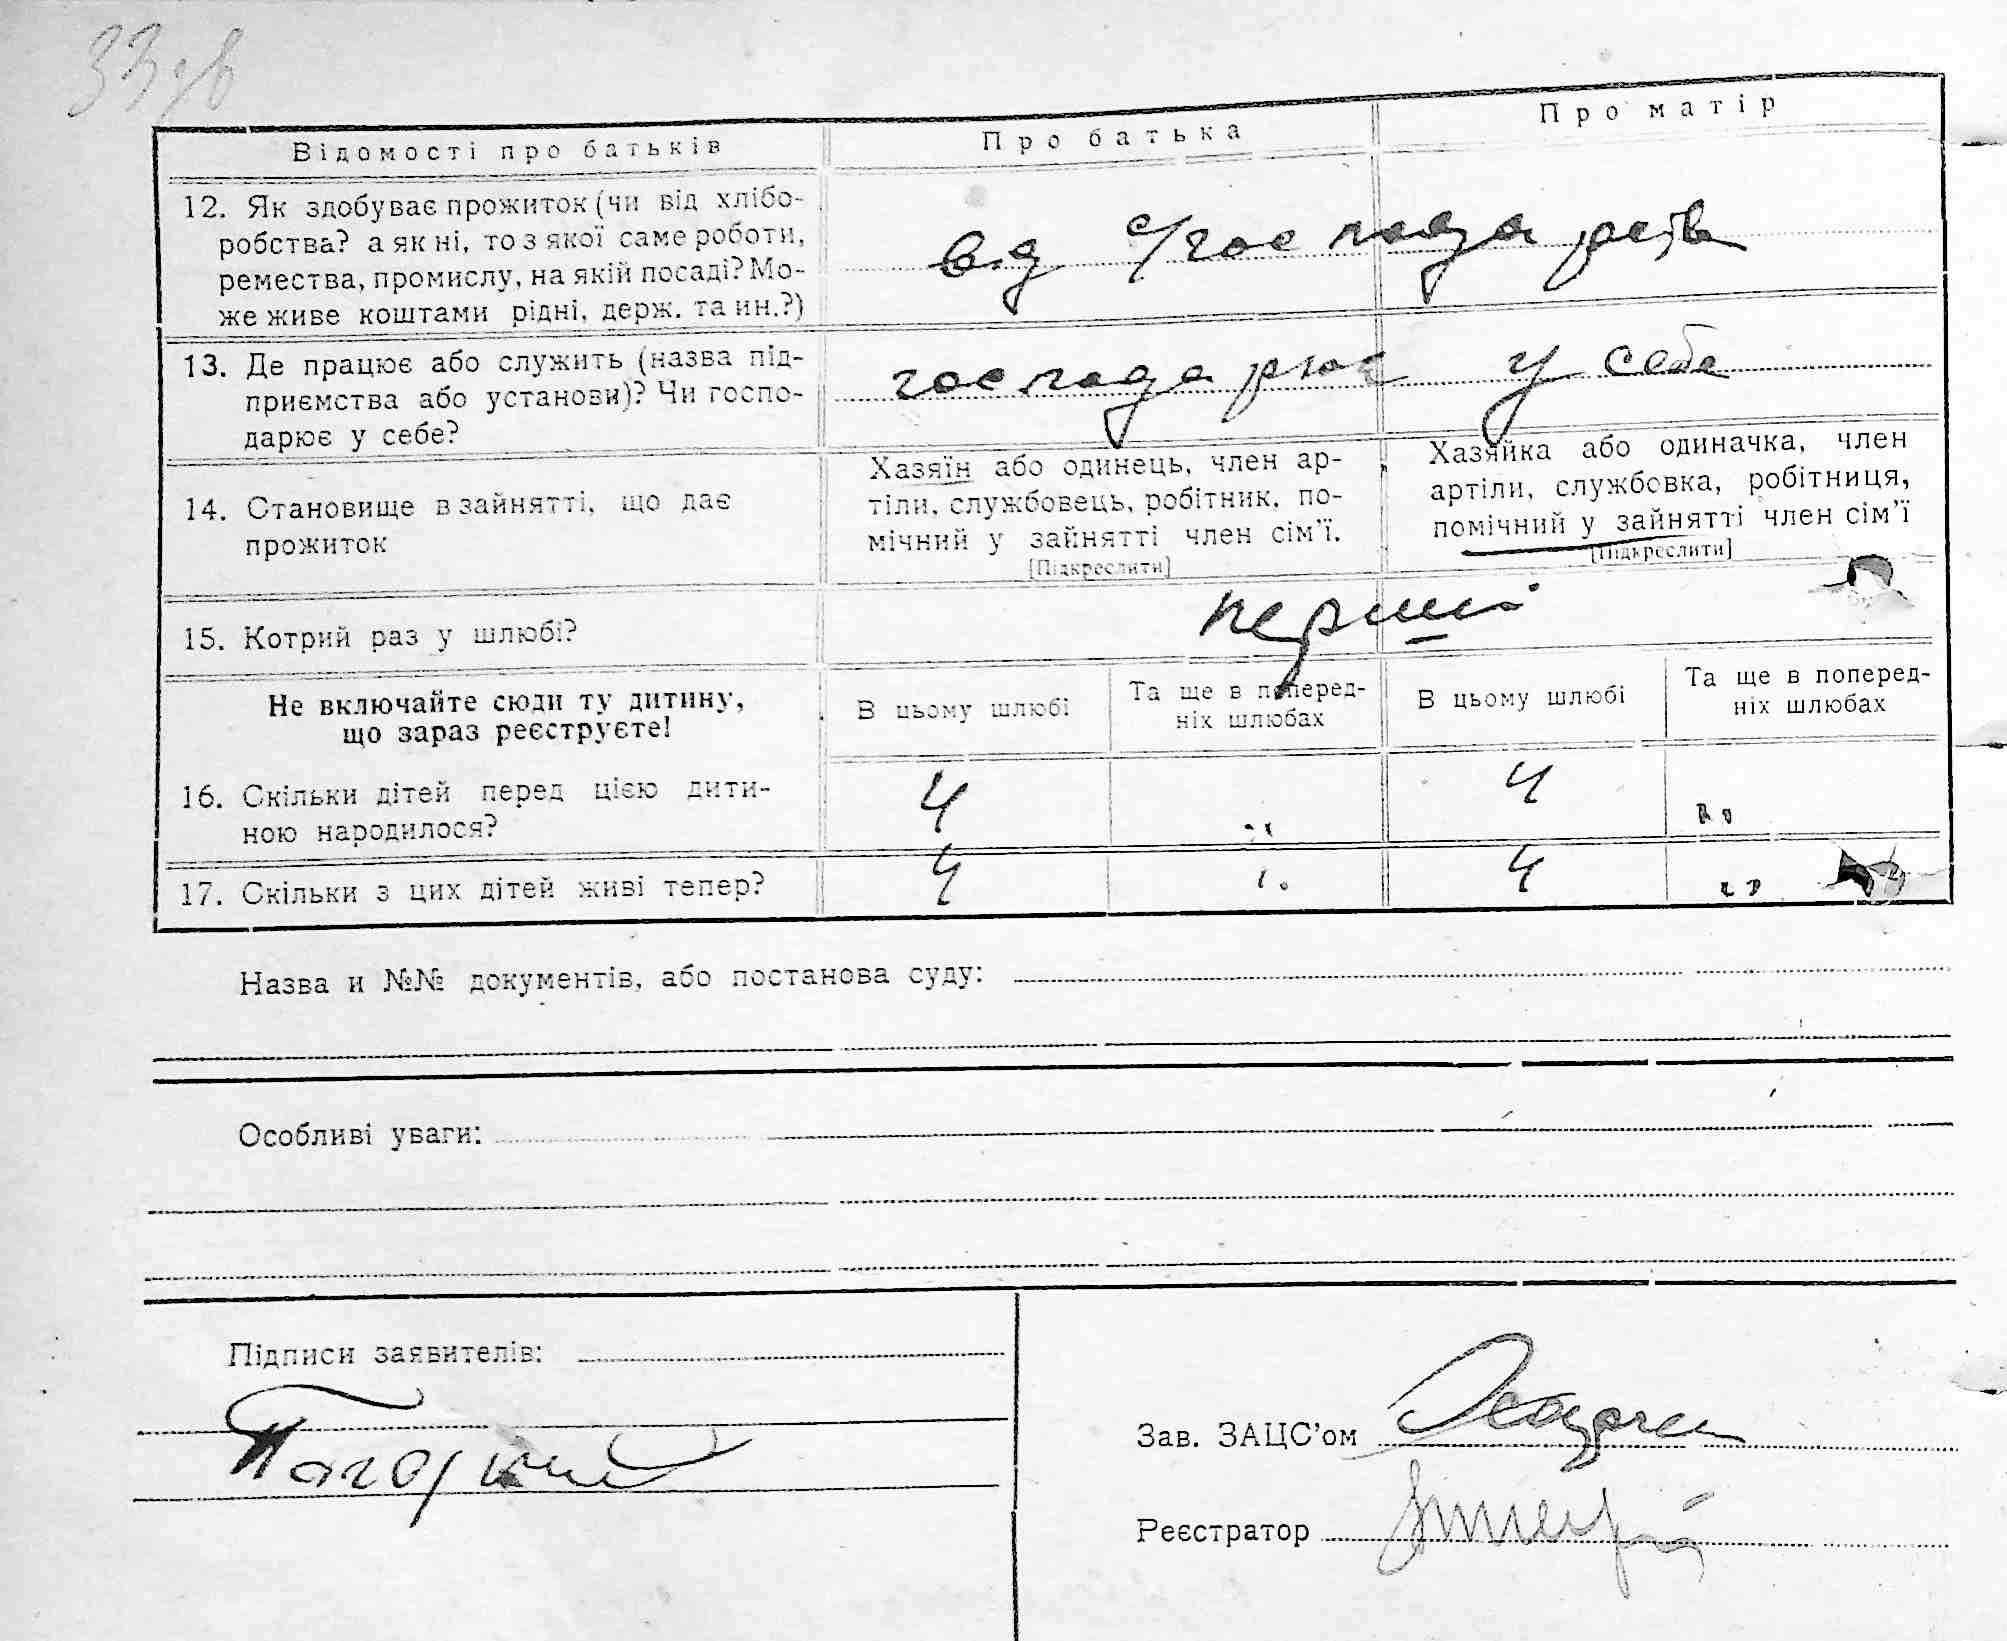 33зв
Відомості про батьків
Про батька
Про матір
12. Як здобуває прожиток (чи від хлібо-
робства? а як ні, то з якої саме роботи,
ремества, промислу, на якій посаді? Мо-
же живе коштами рідні, держ. та ин.?)
від с/господарства
13. Де працює або служить (назва під-
приємства або установи)? Чи госпо-
дарює у себе?
господарює у себе
14. Становище в зайнятті, що дає
прожиток
Хазяїн або одинець, член ар-
тіли, службовець, робітник, по-
мічний у зайнятті член сім’ї.
[Підкреслити]
Хазяйка або одиначка, член
артіли, службовка, робітниця,
помічний у зайнятті член сім’ї
[Підкреслити]
15. Котрий раз у шлюбі?
перший
Не включайте сюди ту дитину,
що зараз реєструєте!
В цьому шлюбі
Та ще в поперед-
ніх шлюбах
В цьому шлюбі
Та ще в поперед-
ніх шлюбах
16. Скільки дітей перед цією дити-
ною народилося?
4 „ 4 „
17. Скільки з цих дітей живі тепер?
4 „ 4 „
Назва и №№ документів, або постанова суду:
Особливі уваги:
Підписи заявителів:
Зав. ЗАЦС’ом
Реєстратор